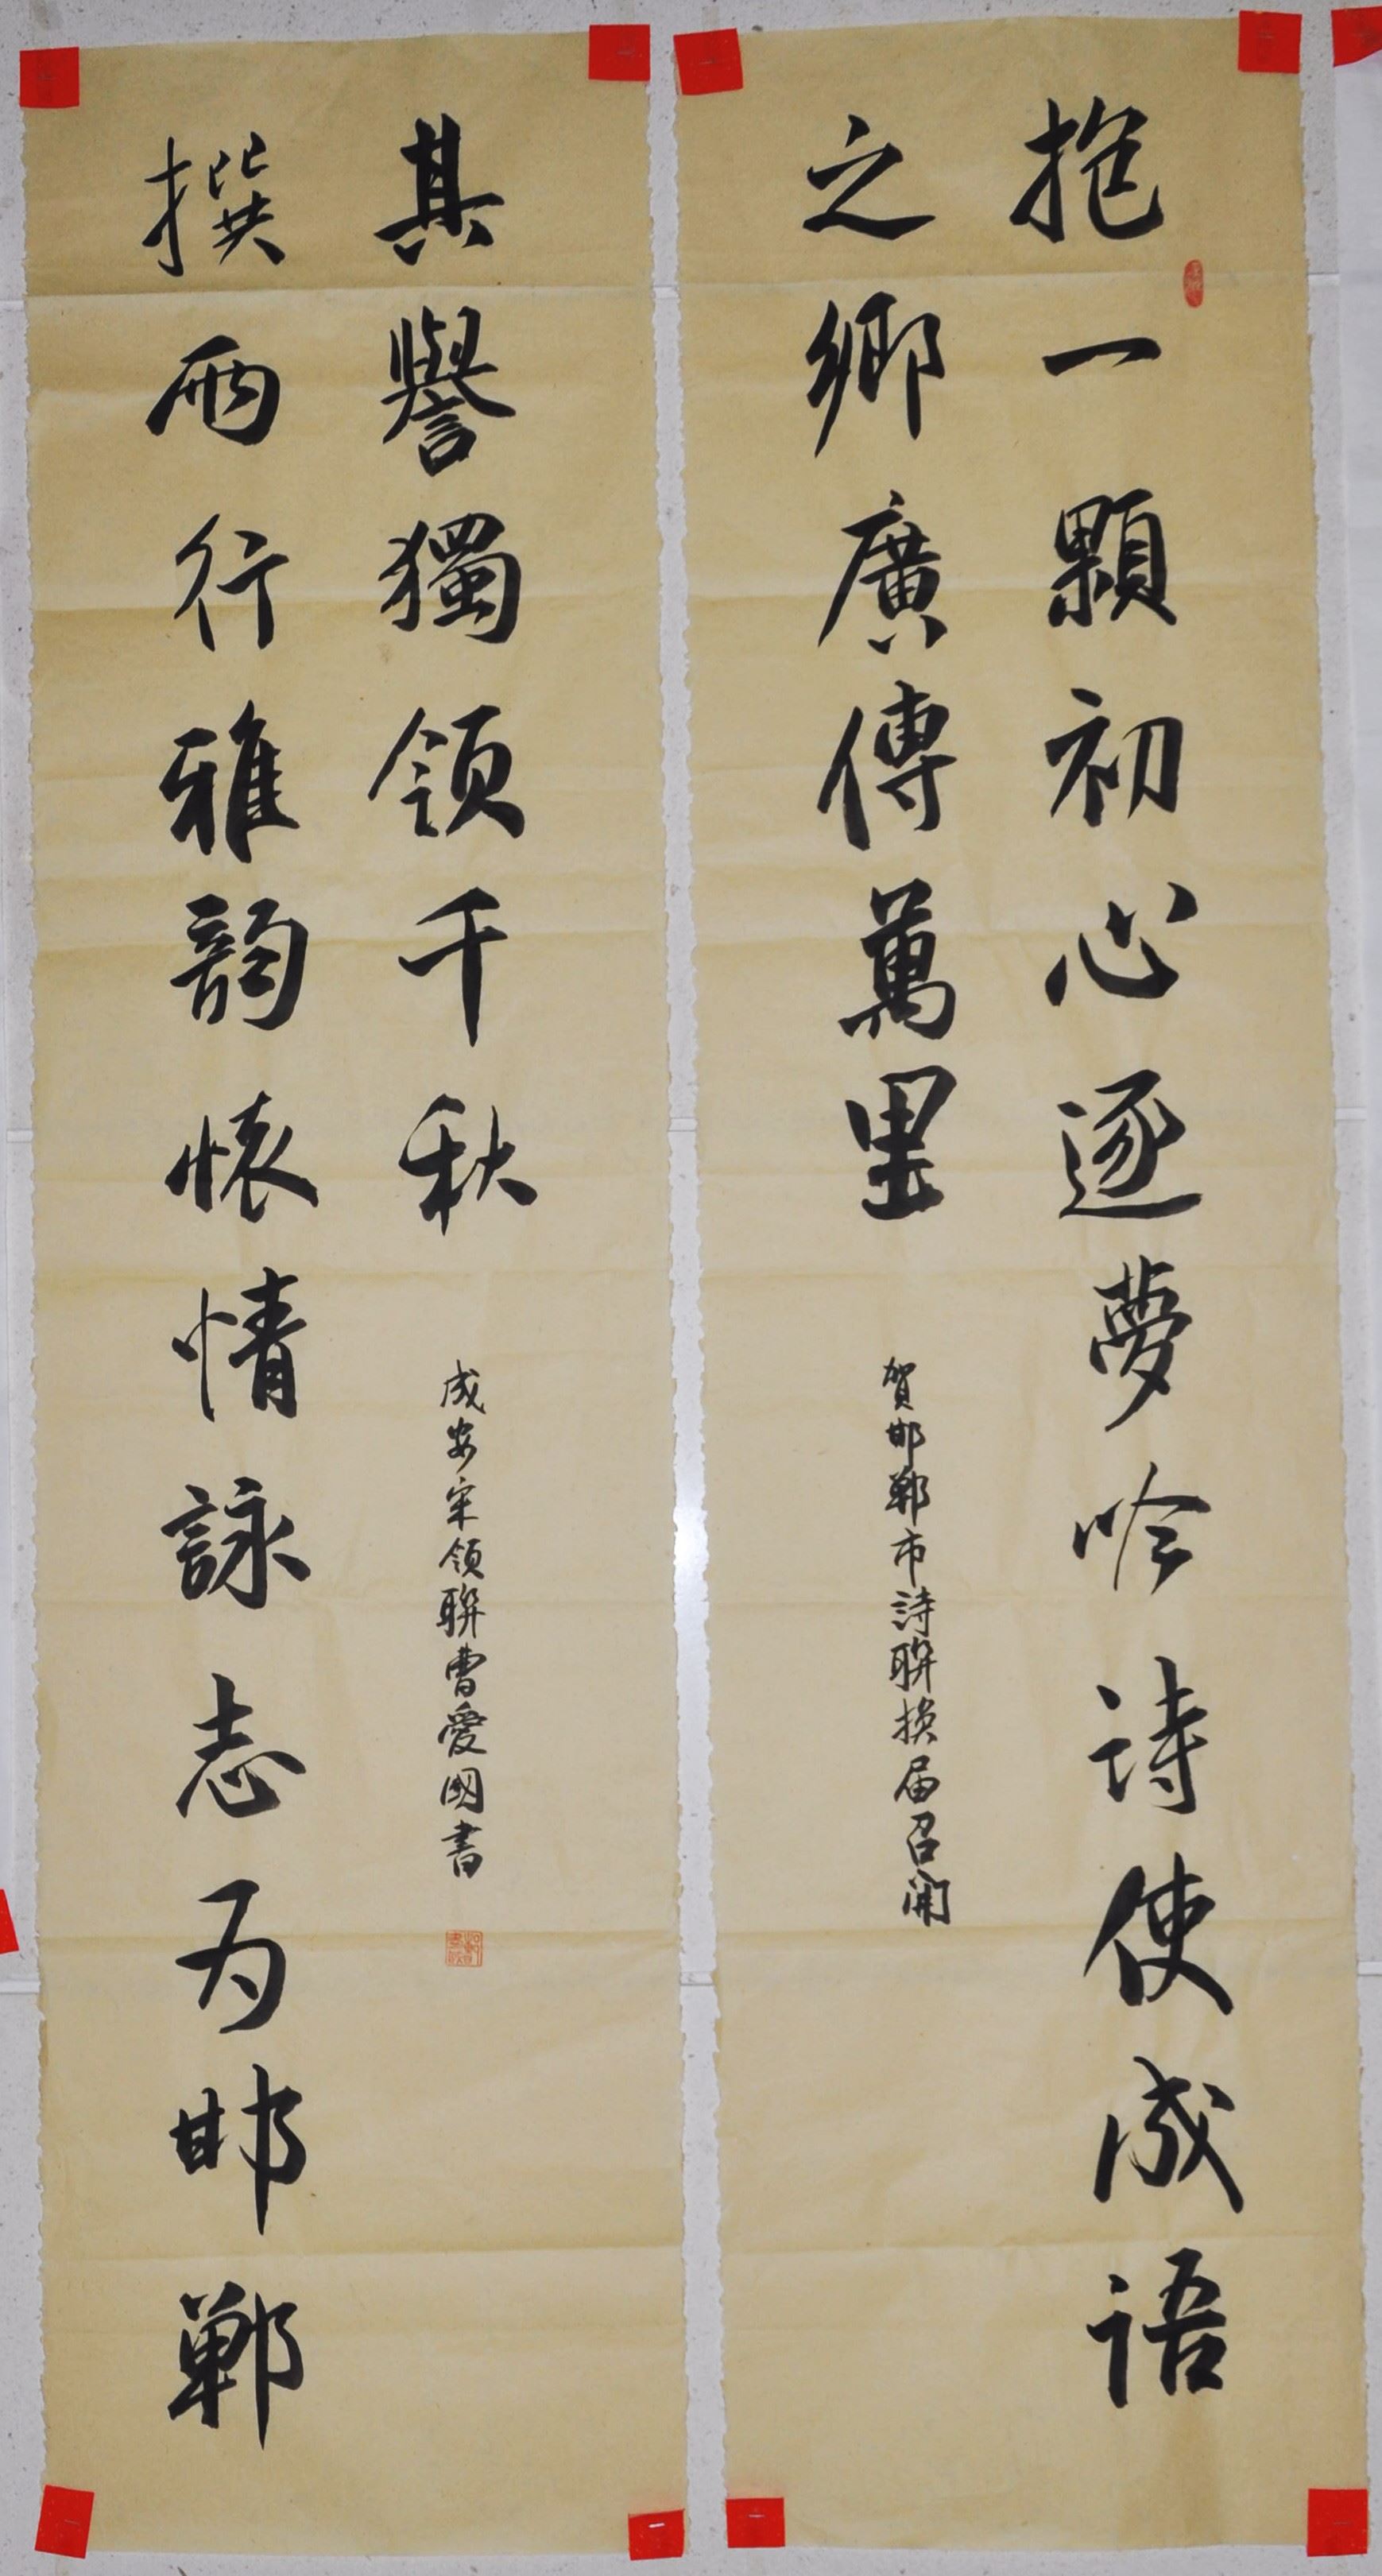 抱一顆初心逐夢吟詩使成語
之鄉廣傳萬里
賀邯鄲市詩聯換届召開
撰兩行雅韵懷情詠志為邯鄲
其譽獨領千秋
成安宋領聯曹愛國書